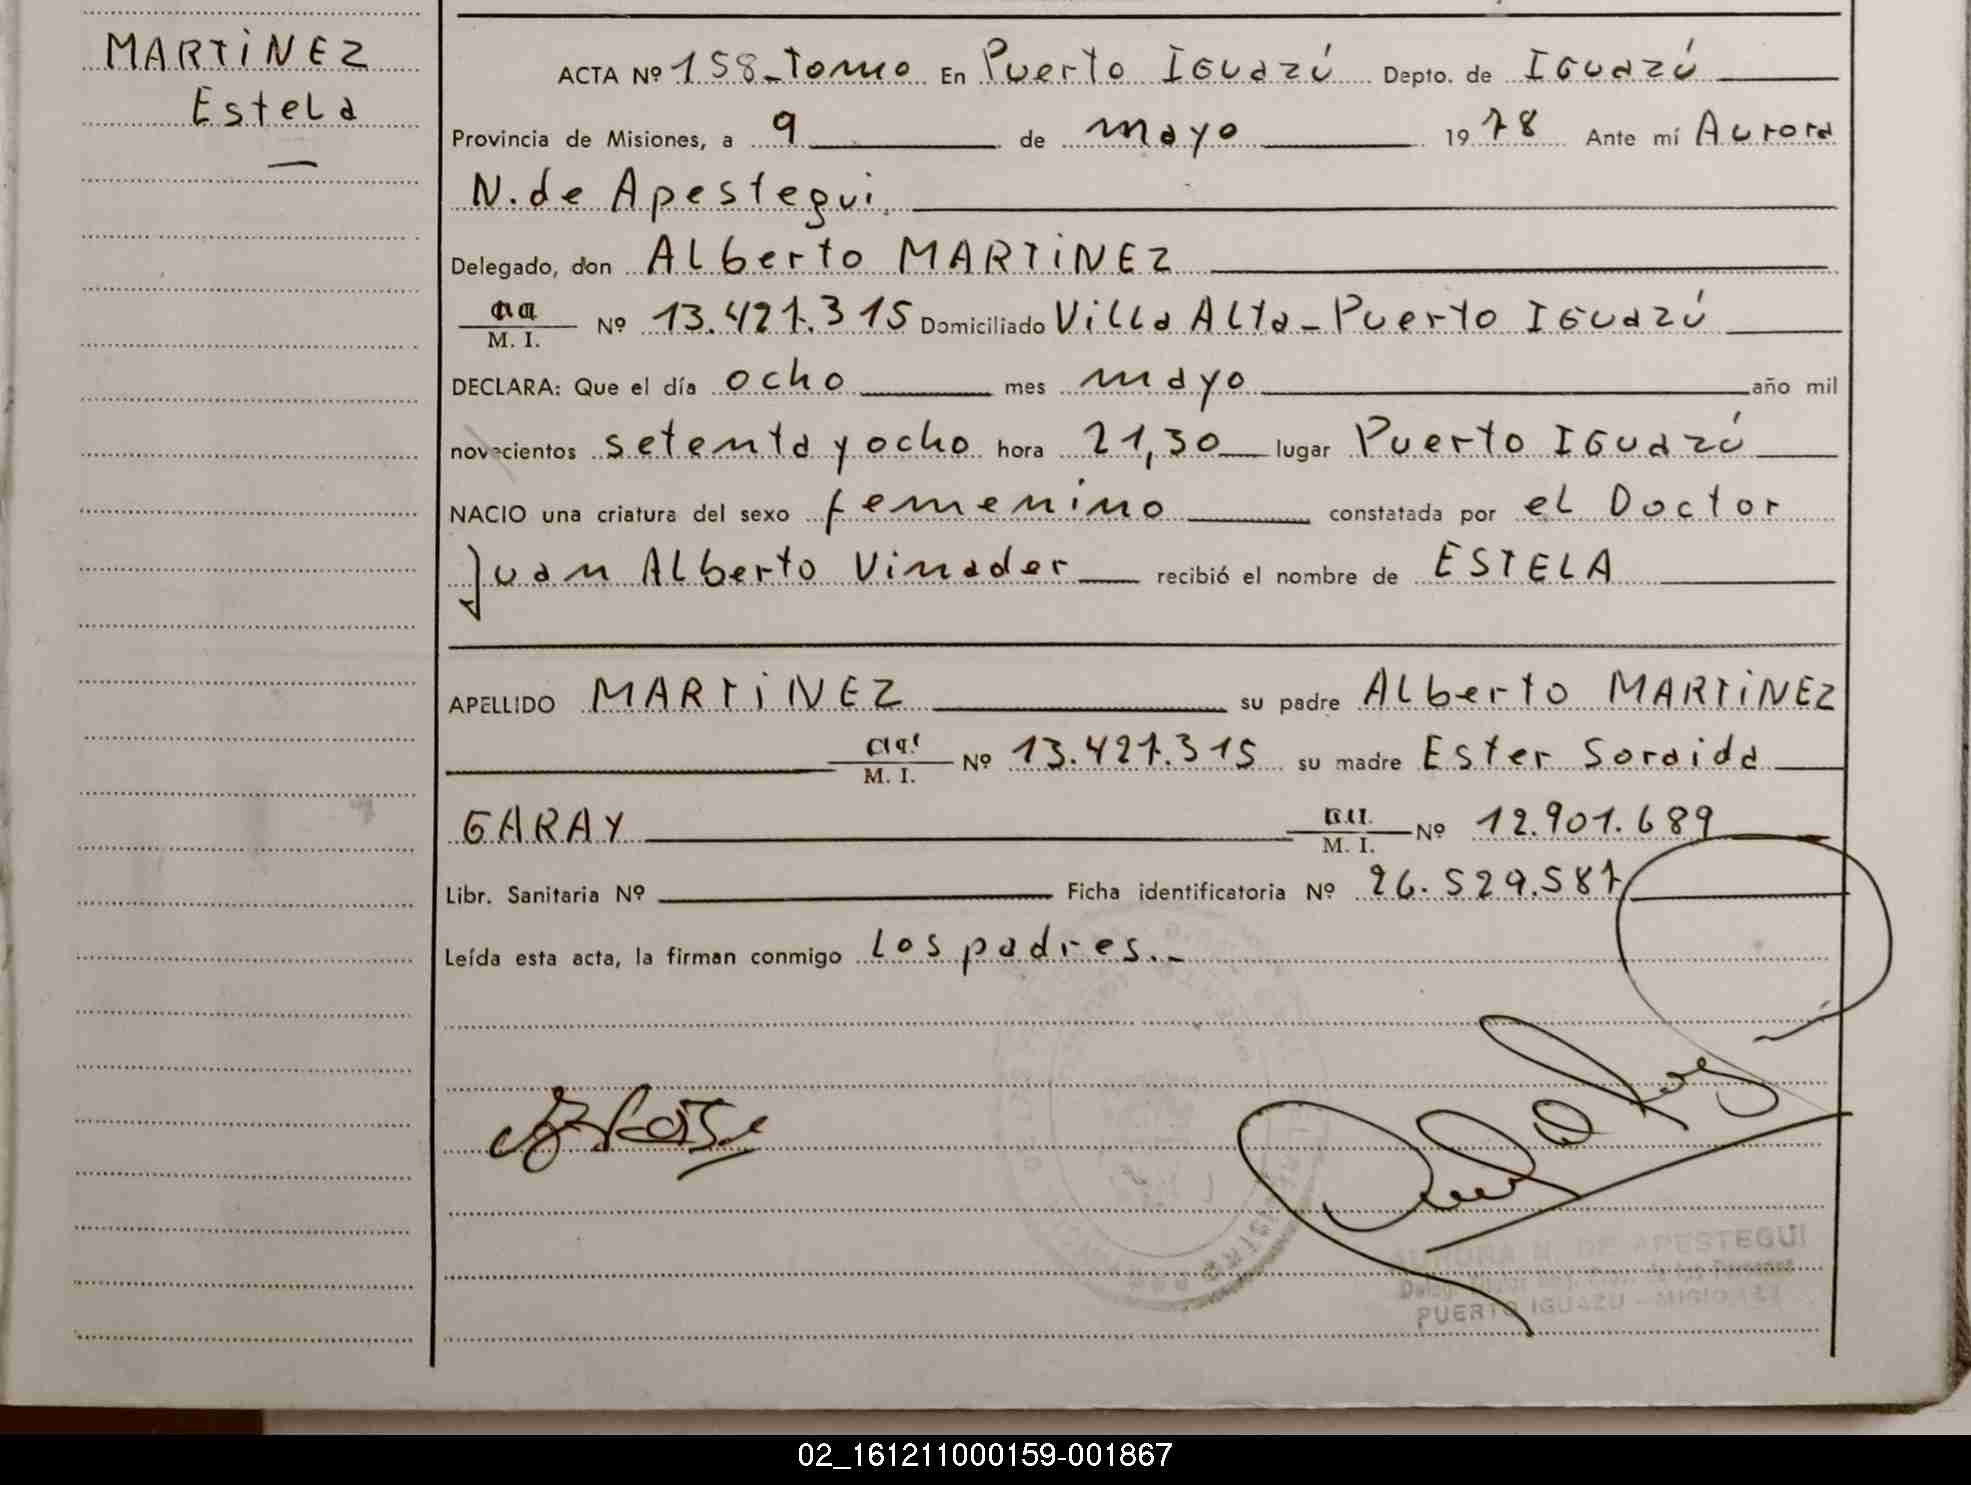 MARTiNEZ
Estela
ACTA Nº 158-Tomo En Puerto Iguazú Depto. de Iguazú
Provincia de Misiones, a 9 de mayo 1978 Ante mí Aurora
N. de Apestegui.
Delegado, don Alberto MARTiNEZ
M. I. Nº 13.427.315 Domiciliado Villa Alta - Puerto Iguazú
DECLARA: Que el día ocho mes mayo año mil
novecientos setenta y ocho hora 21,30 lugar Puerto Iguazú
NACIO una criatura del sexo femenino constatada por el Doctor
Juan Alberto Vinader recibió el nombre de ESTELA
APELLIDO MARTiNEZ su padre Alberto MARTiNEZ
M. I. Nº 13.427.315 su madre Ester Soraida
GARAY M. I. Nº 12.901.689
Libr. Sanitaria Nº Ficha identificatoria Nº 26.529.587
Leída esta acta, la firman conmigo los padres.-
AURORA N. DE APESTEGUI
PUERTO IGUAZU - MISIONES
02_161211000159-001867